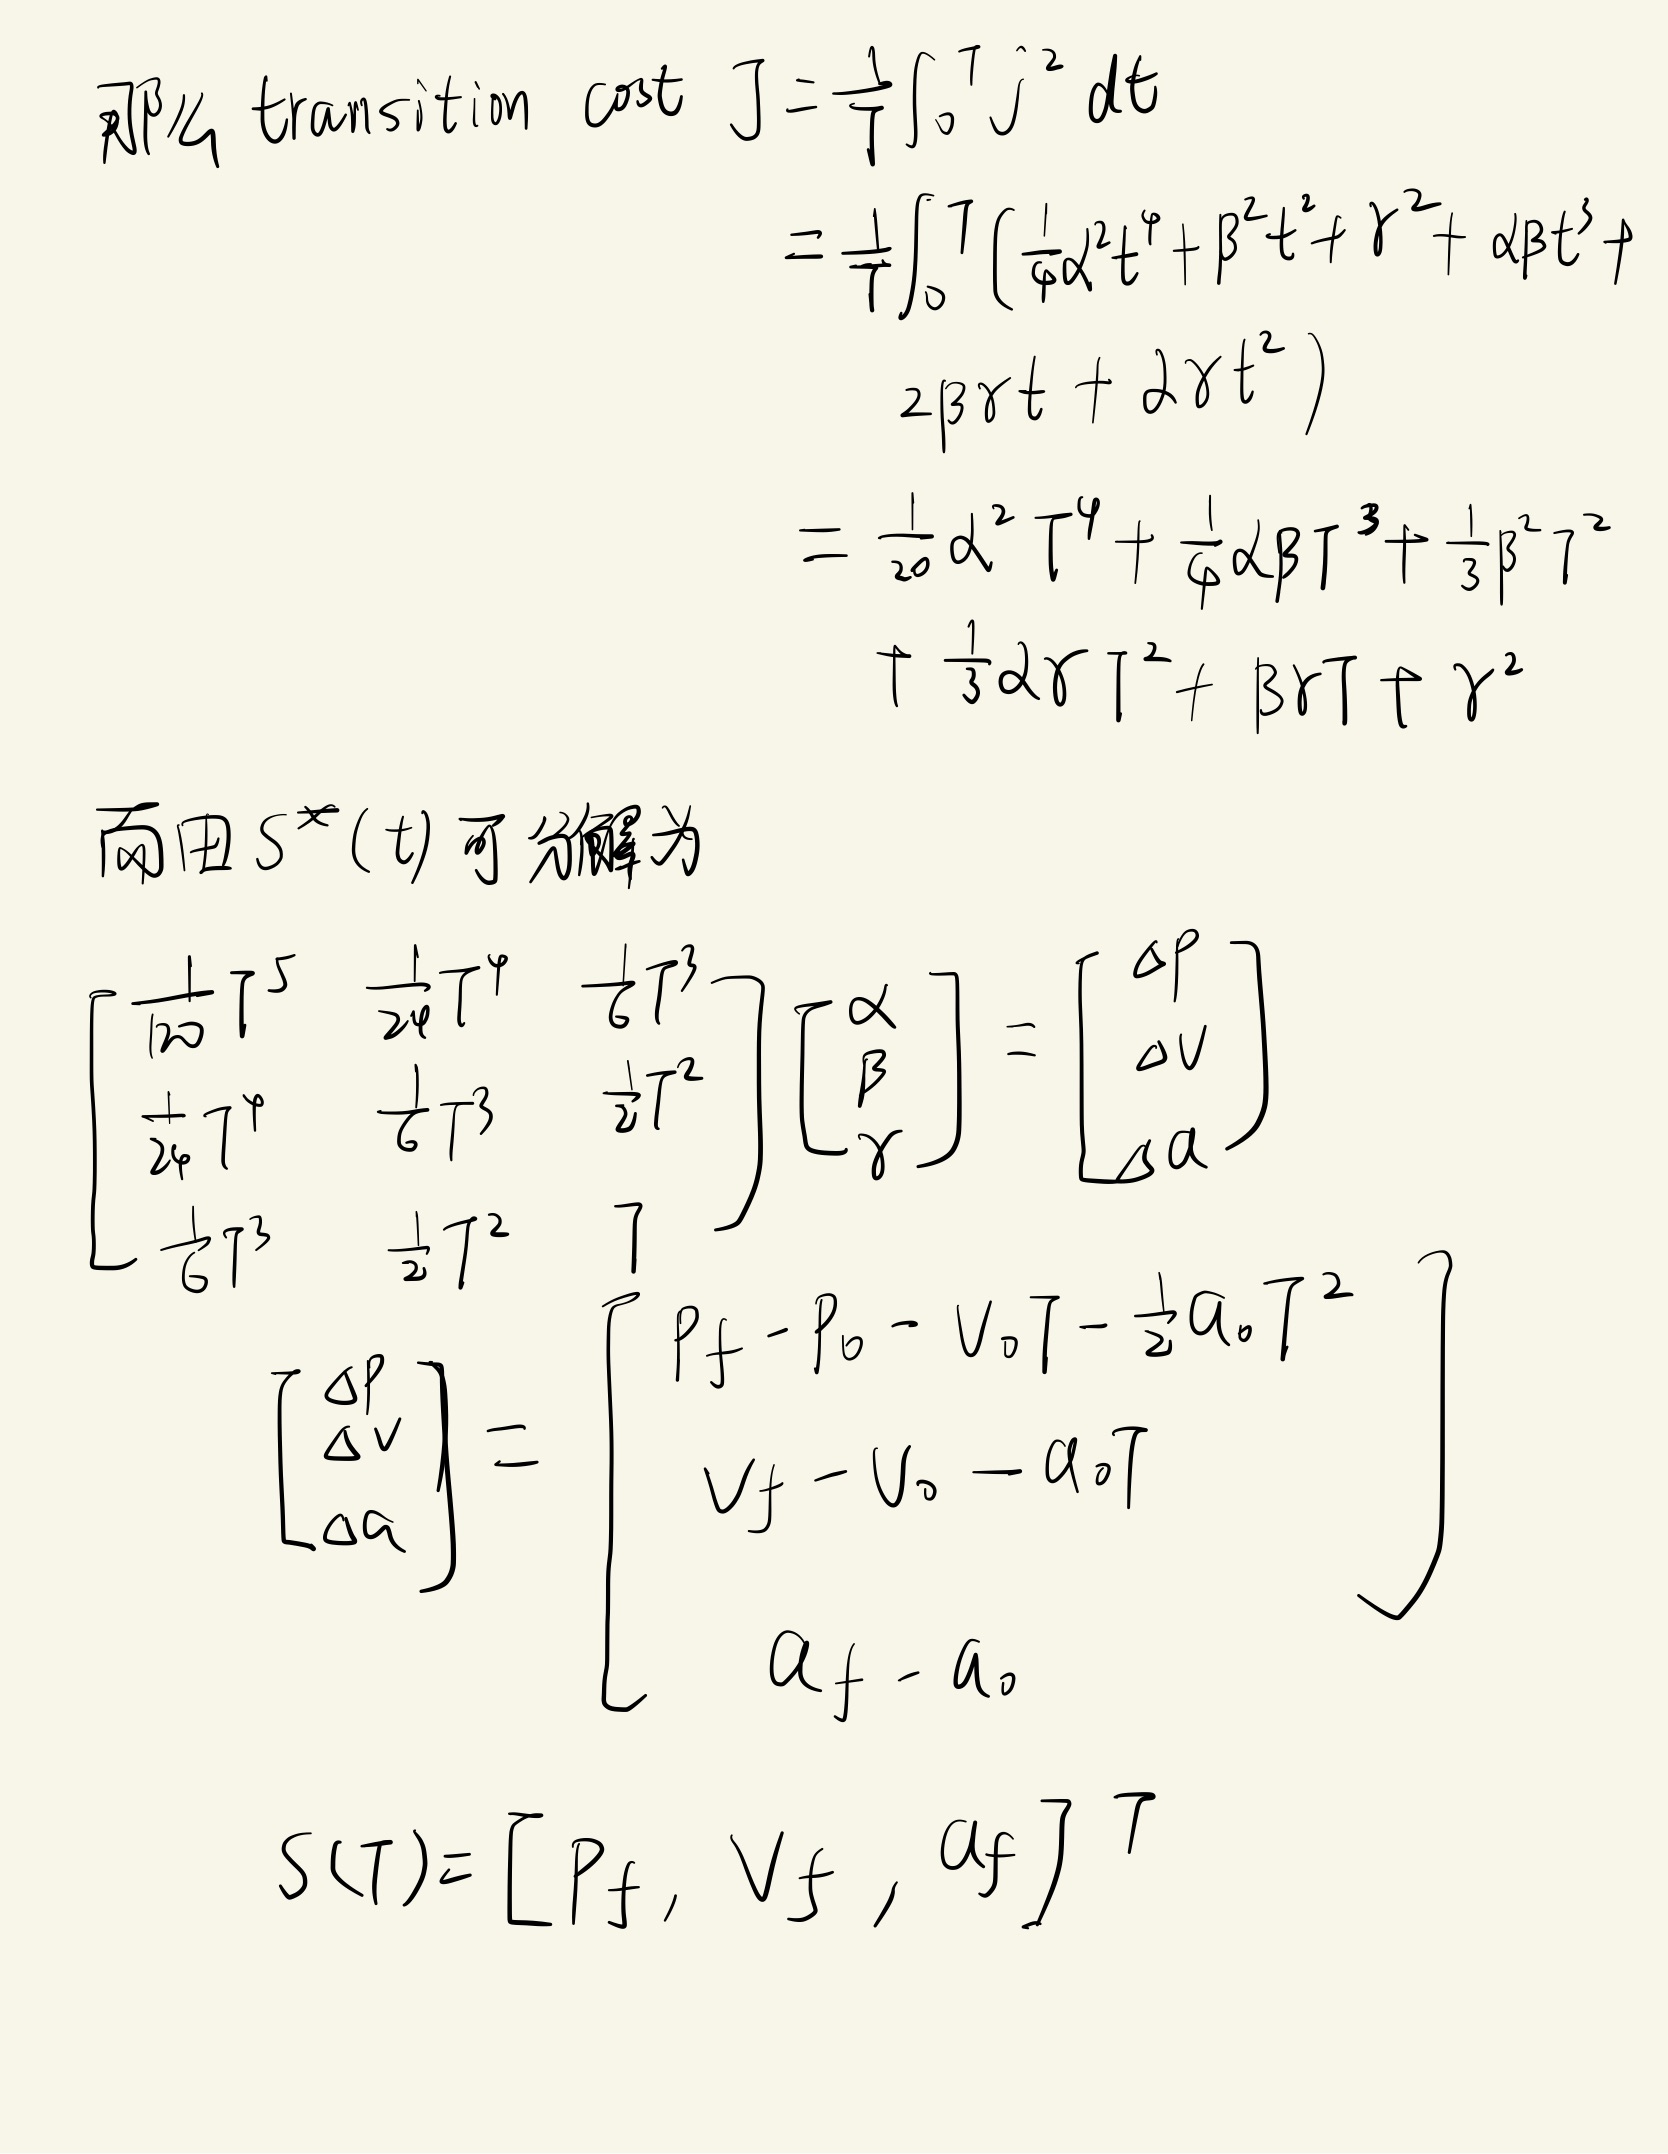 那么 transition cost J = 1/T ∫₀ᵀ j² dt
= 1/T ∫₀ᵀ (1/4 α²t⁴ + β²t² + γ² + αβt³ +
2βγt + αγt²)
= 1/20 α²T⁴ + 1/4 αβT³ + 1/3 β²T²
+ 1/3 αγT² + βγT + γ²
而由 S*(t) 可分解为
[1/120 T⁵ 1/24 T⁴ 1/6 T³; 1/24 T⁴ 1/6 T³ 1/2 T²; 1/6 T³ 1/2 T² T] [α; β; γ] = [Δp; Δv; Δa]
[Δp; Δv; Δa] = [Pf - P₀ - V₀T - 1/2 a₀T²; Vf - V₀ - a₀T; af - a₀]
S(T) = [Pf, Vf, af]ᵀ